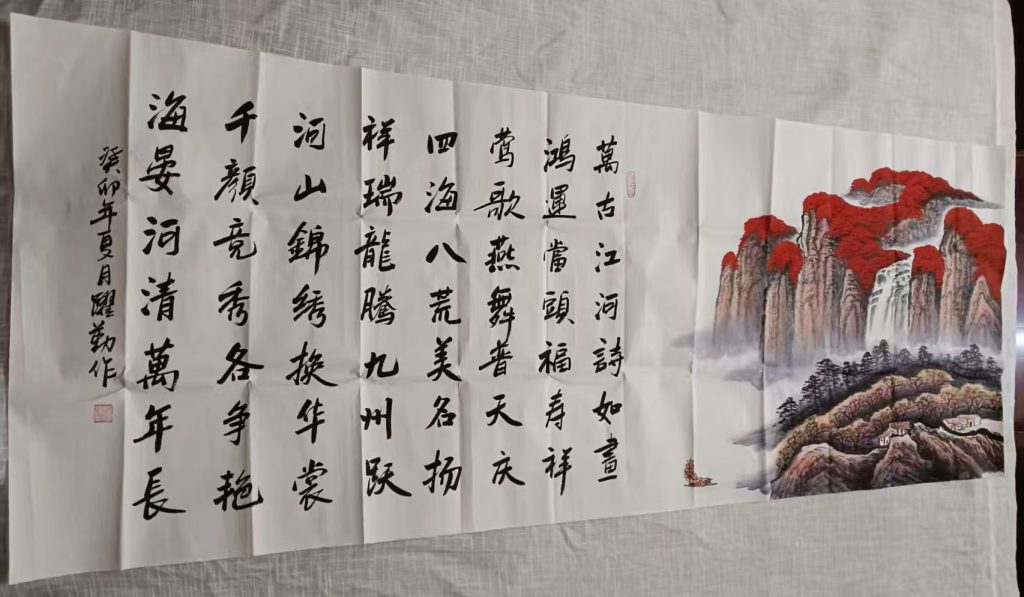 萬古江河詩如畫
鴻運當頭福寿祥
莺歌燕舞普天庆
四海八荒美名扬
祥瑞龍騰九州跃
河山錦绣换华裳
千顔竞秀各争艳
海晏河清萬年長
癸卯年夏月躍勤作